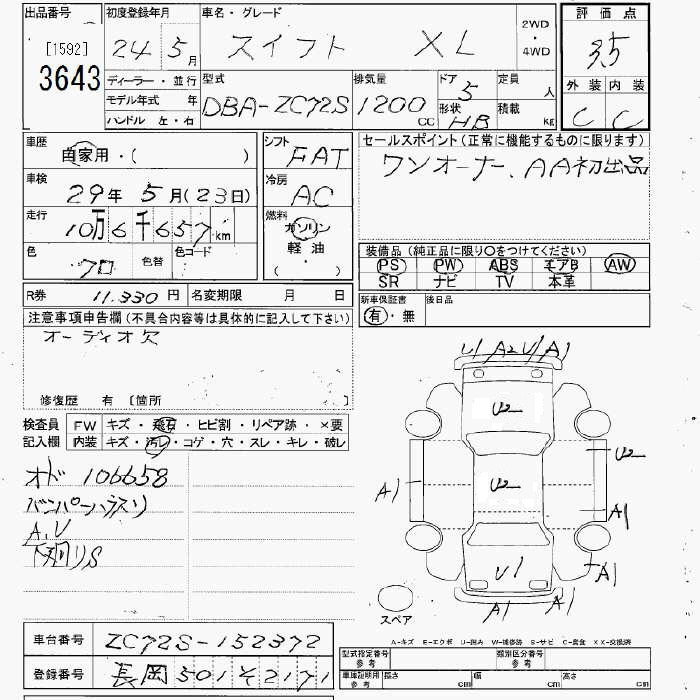 出品番号 初度登録年月 車名・グレード 2WD ・ 4WD 評価点
[1592] 3643 24年 5月 スイフト XL 3.5
ディーラー・並行 型式 排気量 ドア 定員 外装 内装
モデル年式 年 DBA-ZC72S 1200CC 5 人 C C
ハンドル 左・右 形状 HB 積載 KG
車歴 自家用・( ) シフト FAT セールスポイント(正常に機能するものに限ります)
車検 29年 5月(23日) 冷房 AC ワンオーナー、AA初出品
走行 10万6千657km 燃料 ガソリン 軽油 ( )
色 クロ 色替 色コード
装備品(純正品に限り○をつけてください)
PS PW ABS エアB AW
SR ナビ TV 本革
R券 11.330円 名変期限 月 日 新車保証書 有・無 後日品
注意事項申告欄(不具合内容等は具体的に記入して下さい)
オーディオ欠
修復歴 有 〔箇所
検査員記入欄 FW キズ・飛石・ヒビ割・リペア跡・×要
内装 キズ・汚レ・コゲ・穴・スレ・キレ・破レ
オド 106658
バンパーハラスリ
A,U
下廻りS
U1 A2 U1 A1
U2
U2
U2
A1
A1
U1
A1
A1 A1
スペア
A-キズ E-エクボ U-凹み W-補修跡 S-サビ C-腐食 XX-交換済
車台番号 ZC72S-152372
登録番号 長岡501そ2171
型式指定番号 参考 類別区分番号 参考
車庫証明用 参考 長さ cm 幅 cm 高さ cm